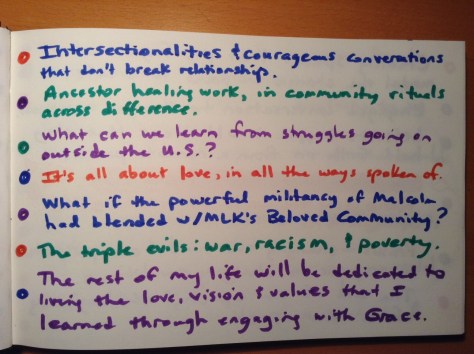 Intersectionalities & courageous conversations
that don't break relationship.
Ancestor healing work, in community rituals
across difference.
What can we learn from struggles going on
outside the U.S.?
It's all about love, in all the ways spoken of.
What if the powerful militancy of Malcolm
had blended w/MLK's Beloved Community?
The triple evils: war, racism, & poverty.
The rest of my life will be dedicated to
living the love, vision & values that I
learned through engaging with Grace.